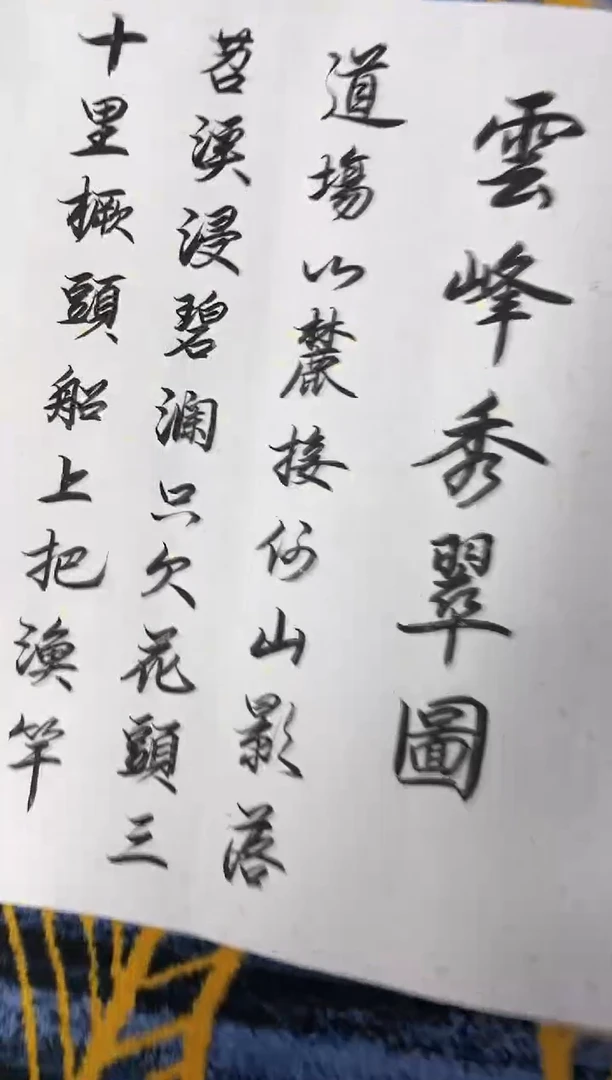 雲峰秀翠圖
道場山麓接何山影落
苕溪浸碧瀾只欠荻頭三
十里橛頭船上把漁竿